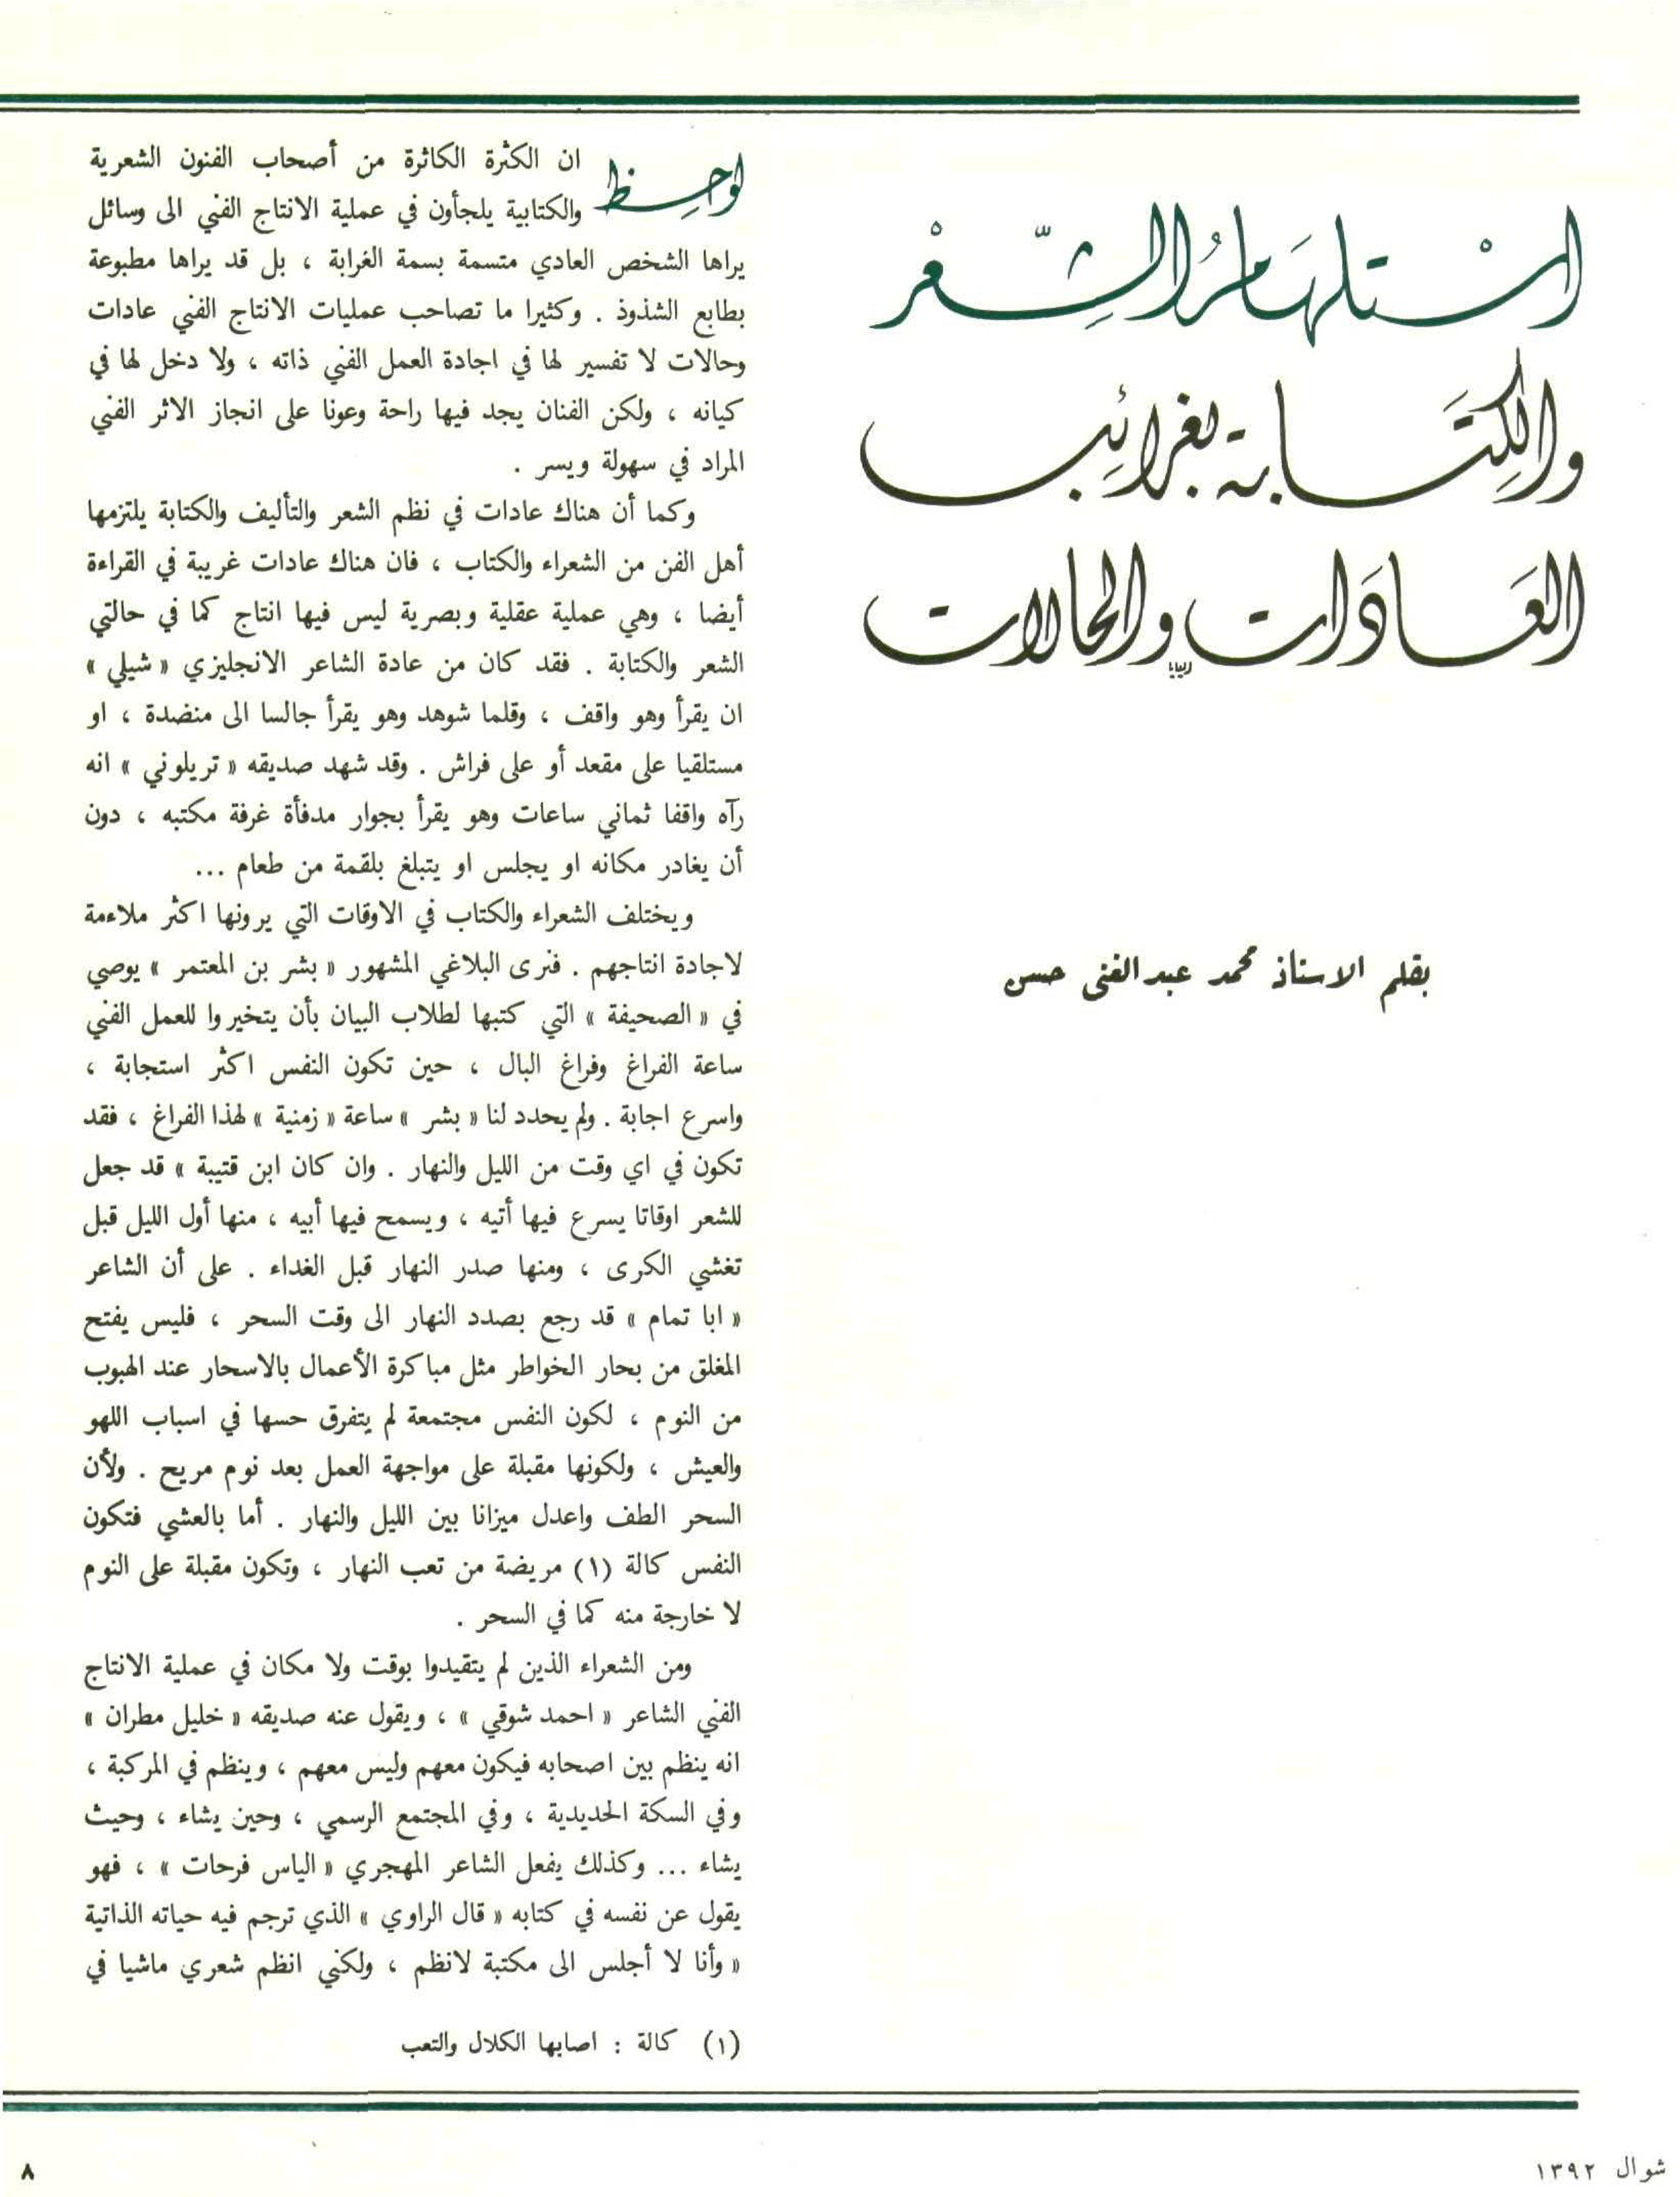 اسْتلهَامُ الشِّعْر
والكِتَابة بغرائِب
العَادَات والحالات
بقلم الاستاذ محمد عبد الغنى حسن
لوحِظ ان الكثرة الكاثرة من أصحاب الفنون الشعرية
والكتابية يلجأون في عملية الانتاج الفني الى وسائل
يراها الشخص العادي متسمة بسمة الغرابة ، بل قد يراها مطبوعة
بطابع الشذوذ . وكثيرا ما تصاحب عمليات الانتاج الفني عادات
وحالات لا تفسير لها في اجادة العمل الفني ذاته ، ولا دخل لها في
كيانه ، ولكن الفنان يجد فيها راحة وعونا على انجاز الاثر الفني
المراد في سهولة ويسر .
وكما أن هناك عادات في نظم الشعر والتأليف والكتابة يلتزمها
أهل الفن من الشعراء والكتاب ، فان هناك عادات غريبة في القراءة
أيضا ، وهي عملية عقلية وبصرية ليس فيها انتاج كما في حالتي
الشعر والكتابة . فقد كان من عادة الشاعر الانجليزي « شيلي »
ان يقرأ وهو واقف ، وقلما شوهد وهو يقرأ جالسا الى منضدة ، او
مستلقيا على مقعد أو على فراش . وقد شهد صديقه « تريلوني » انه
رآه واقفا ثماني ساعات وهو يقرأ بجوار مدفأة غرفة مكتبه ، دون
أن يغادر مكانه او يجلس او يتبلغ بلقمة من طعام ...
ويختلف الشعراء والكتاب في الاوقات التي يرونها اكثر ملاءمة
لاجادة انتاجهم . فنرى البلاغي المشهور « بشر بن المعتمر » يوصي
في « الصحيفة » التي كتبها لطلاب البيان بأن يتخيروا للعمل الفني
ساعة الفراغ وفراغ البال ، حين تكون النفس اكثر استجابة ،
واسرع اجابة . ولم يحدد لنا « بشر » ساعة « زمنية » لهذا الفراغ ، فقد
تكون في اي وقت من الليل والنهار . وان كان ابن قتيبة » قد جعل
للشعر اوقاتا يسرع فيها أتيه ، ويسمح فيها أبيه ، منها أول الليل قبل
تغشي الكرى ، ومنها صدر النهار قبل الغداء . على أن الشاعر
« ابا تمام » قد رجع بصدد النهار الى وقت السحر ، فليس يفتح
المغلق من بحار الخواطر مثل مباكرة الأعمال بالاسحار عند الهبوب
من النوم ، لكون النفس مجتمعة لم يتفرق حسها في اسباب اللهو
والعيش ، ولكونها مقبلة على مواجهة العمل بعد نوم مريح . ولأن
السحر الطف واعدل ميزانا بين الليل والنهار . أما بالعشي فتكون
النفس كالة (١) مريضة من تعب النهار ، وتكون مقبلة على النوم
لا خارجة منه كما في السحر .
ومن الشعراء الذين لم يتقيدوا بوقت ولا مكان في عملية الانتاج
الفني الشاعر « احمد شوقي » ، ويقول عنه صديقه « خليل مطران »
انه ينظم بين اصحابه فيكون معهم وليس معهم ، وينظم في المركبة ،
وفي السكة الحديدية ، وفي المجتمع الرسمي ، وحين يشاء ، وحيث
يشاء ... وكذلك يفعل الشاعر المهجري « الياس فرحات » ، فهو
يقول عن نفسه في كتابه « قال الراوي » الذي ترجم فيه حياته الذاتية
« وأنا لا أجلس الى مكتبة لانظم ، ولكني انظم شعري ماشيا في
(١) كالة : اصابها الكلال والتعب
شوال ١٣٩٢
٨